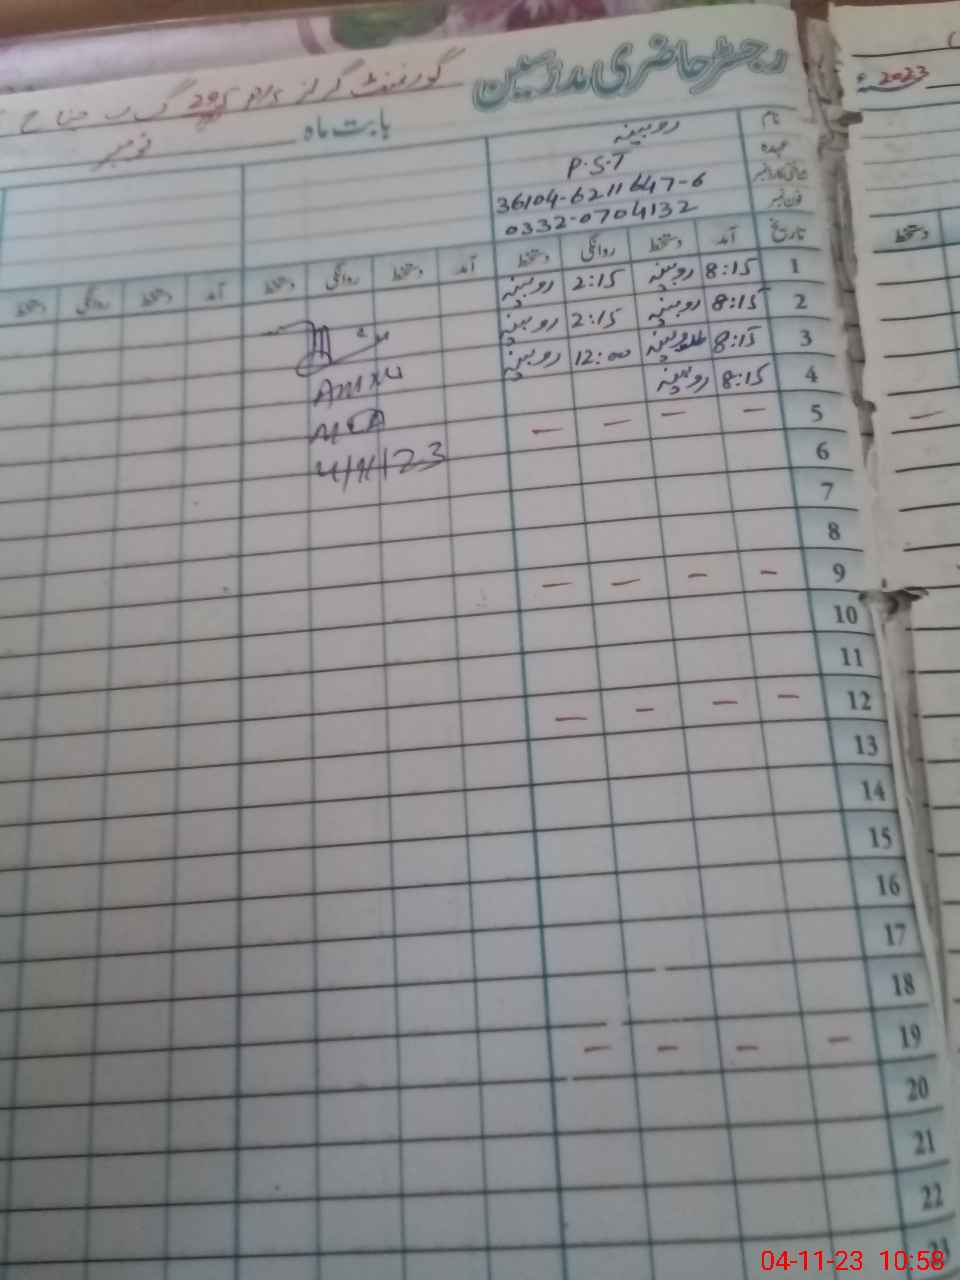 رجسٹر حاضری مدرسین
گورنمنٹ گرلز 295 گ ب
2023ء
بابت ماہ نومبر
نام روبینہ
عہدہ P.S.T
شناختی کارڈ نمبر 36104-6211647-6
فون نمبر 0332-0704132
تاریخ آمد دستخط روانگی دستخط آمد دستخط روانگی دستخط آمد دستخط روانگی دستخط
دستخط
1 8:15 روبینہ 2:15 روبینہ
2 8:15 روبینہ 2:15 روبینہ
3 8:15 روبینہ 12:00 روبینہ
4 8:15 روبینہ
5 — — — —
6
7
8
9 — — — —
10
11
12 — — — —
13
14
15
16
17
18
19 — — — —
20
21
22
23
MEA
4/11/23
04-11-23 10:58